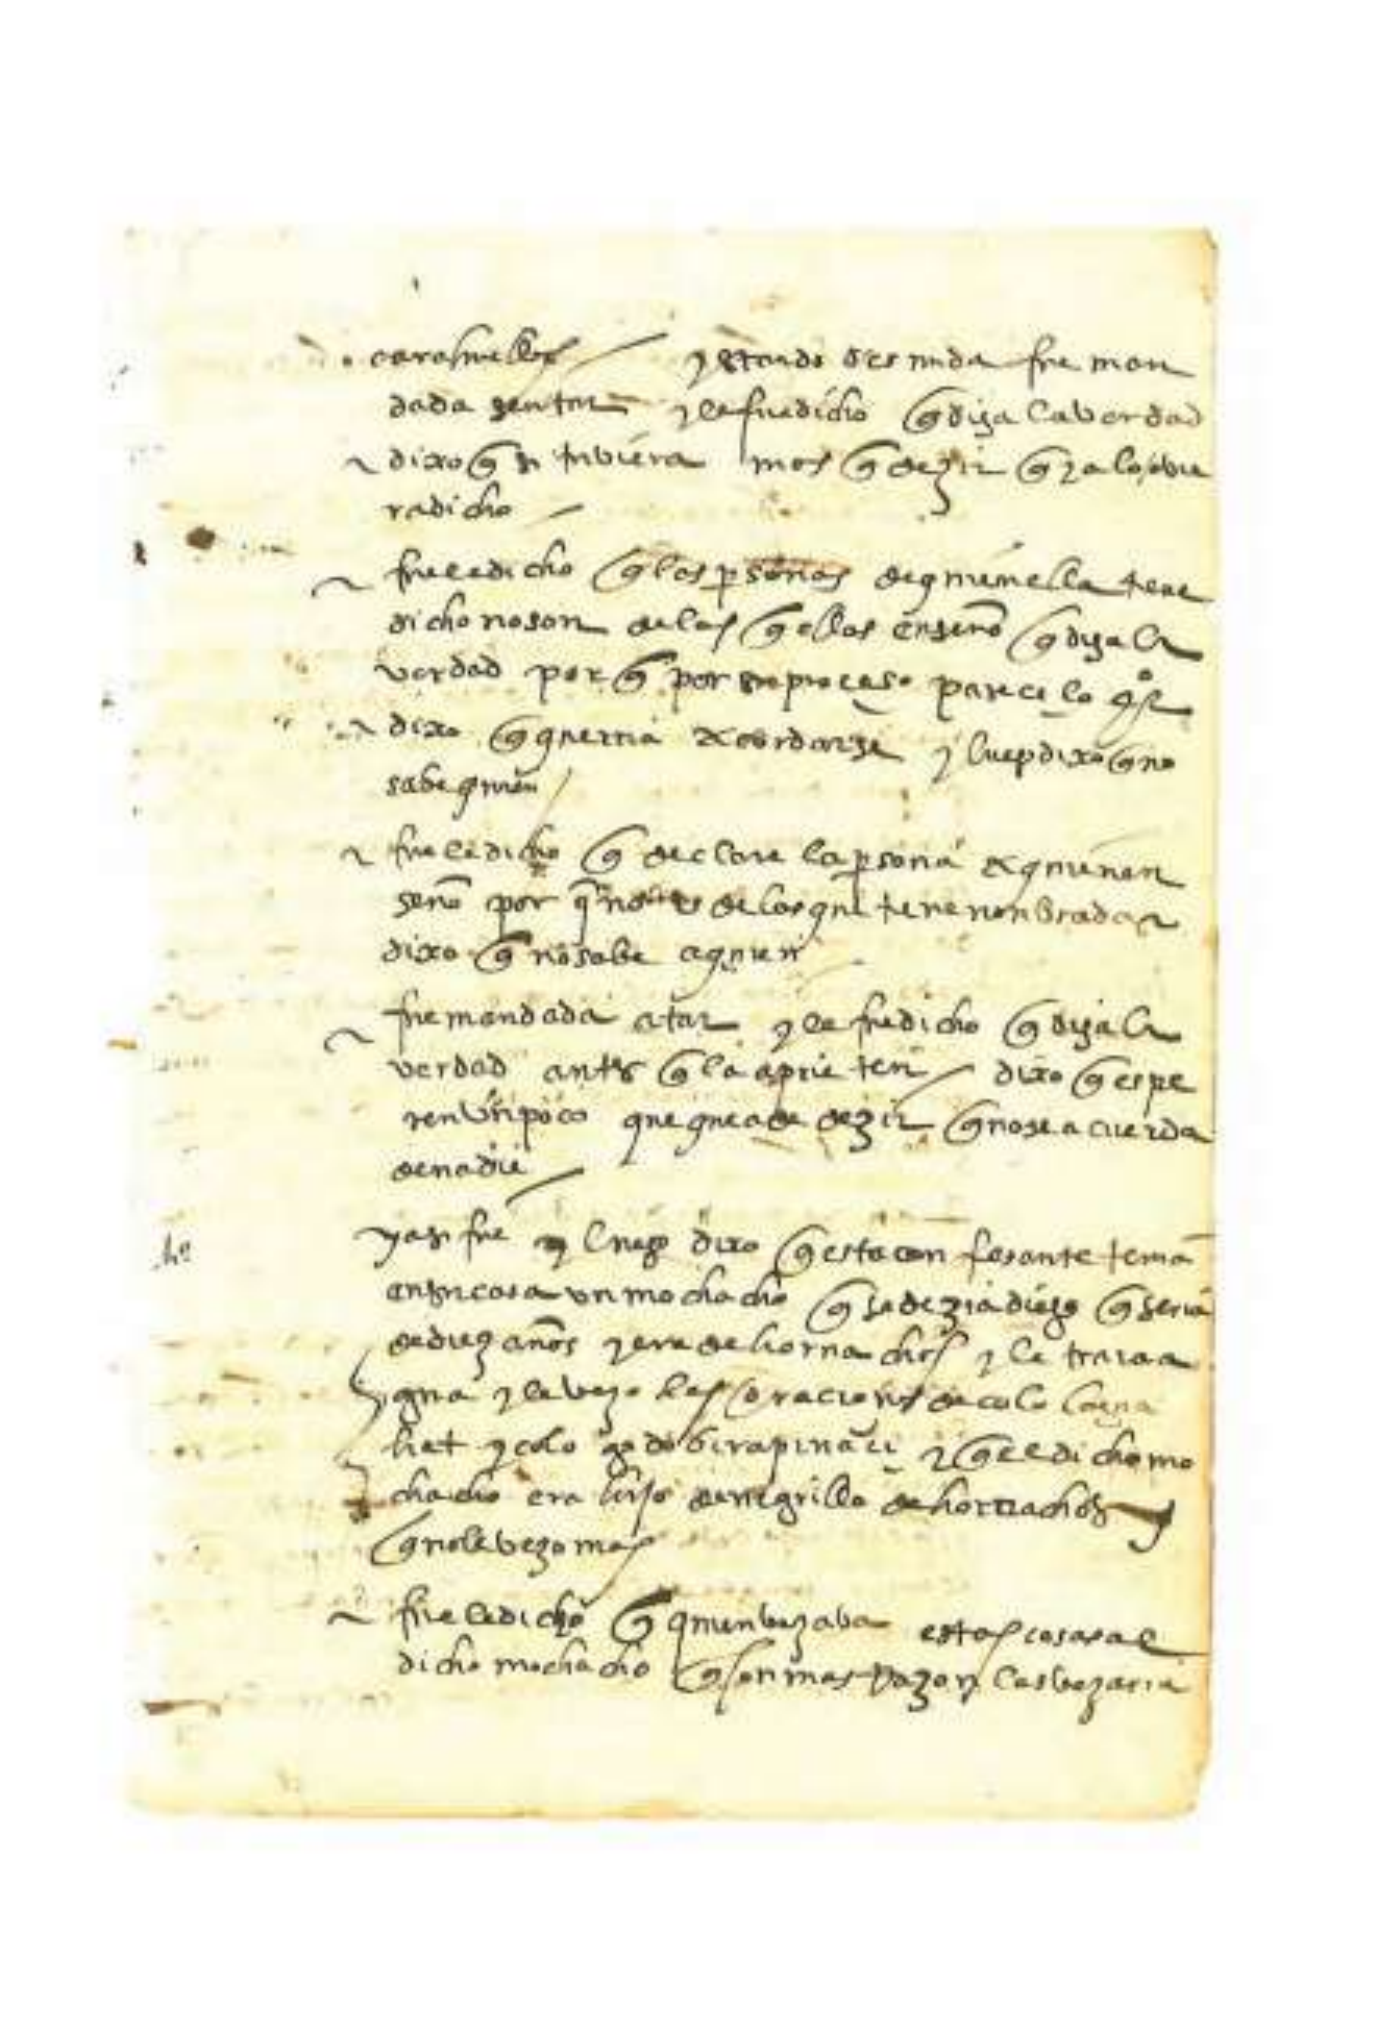 carahuelles y estando desnuda fue man
dada sentar y le fue dicho q diga la verdad
dixo q si tuviera mas q dezir q ya lo ovie
ra dicho
fuele dicho q las personas de quien ella tiene
dicho no son de las q ellas enseño q diga la
verdad por q por su proceso parece lo
dixo q querria acordarse y luego dixo q no
sabe quien
fuele dicho q declare la persona a quien en
seño por q no es de las que tiene nonbradas
dixo q no sabe a quien
fue mandada atar y le fue dicho q diga la
verdad antes q la aprieten dixo q espe
ren un poco que que a de dezir q no se acuerda
de nadie
y asi fue y luego dixo q esta con fesante tenia
en su casa un mochacho q se dezia diego q seria
de diez años y era de hornachos y le traia a
gua y le vezo las oraciones de colo
hat y colo y q el dicho mo
chacho era hijo de negrillo de hornachos y
q no le vezo mas
fuele dicho q quien vezava estas cosas al
dicho mochacho q con mas razon las vezaria